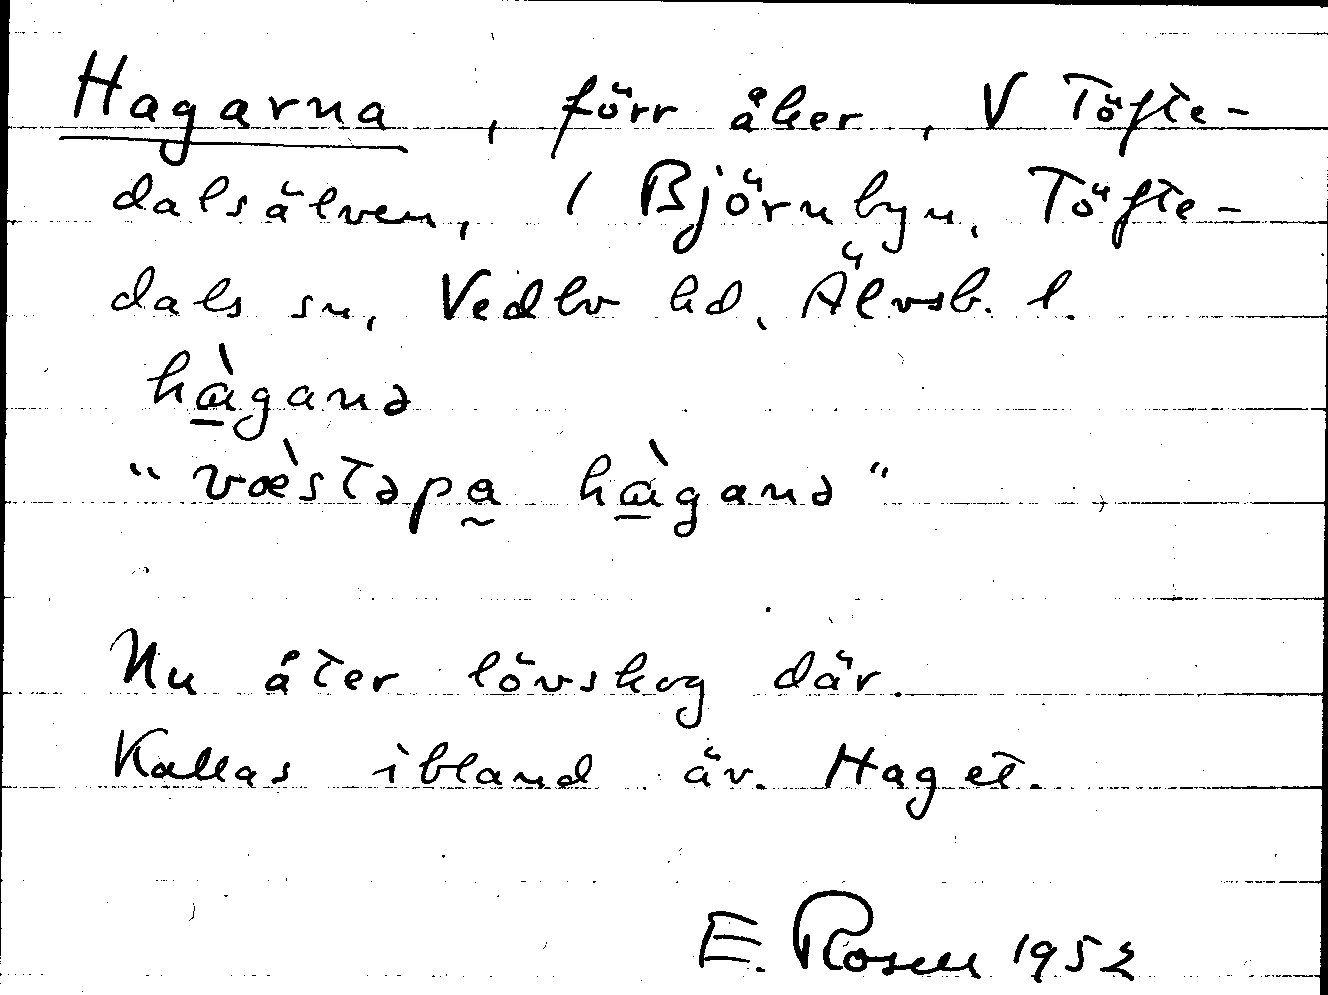 Hagarna, förr åker, V Töfte-
dalsälven, / Björnbyn, Töfte-
dals sn, Vedbo hd, Älvsb. l.
hàganə
"væ̀stəpa hàganə"
Nu åter lövskog där.
Kallas ibland äv. Haget.
E. Rosen 1952